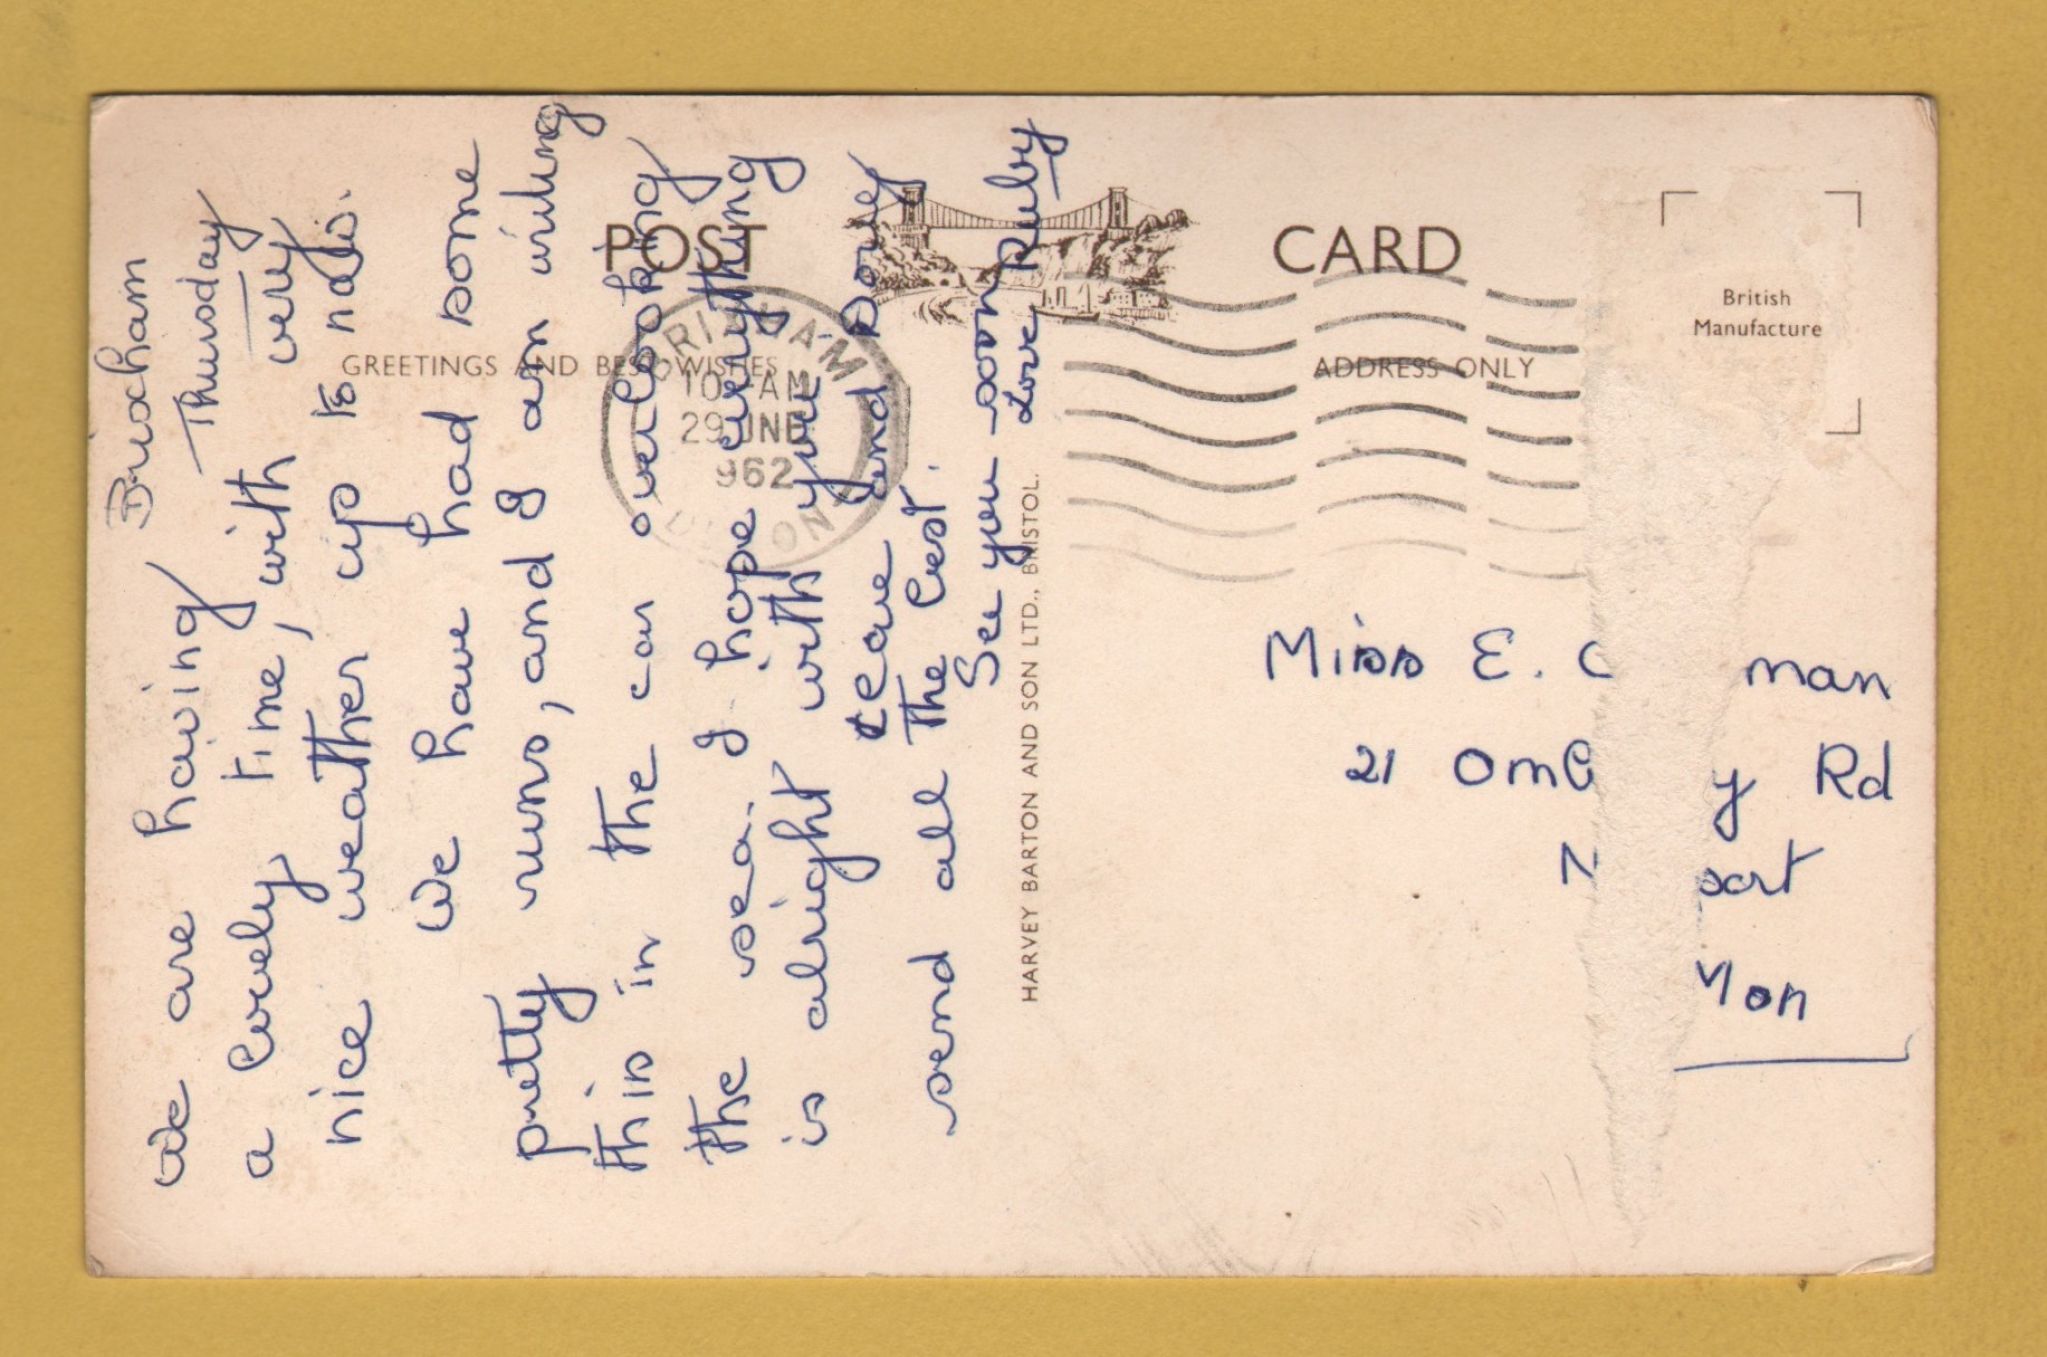 POST CARD
GREETINGS AND BEST WISHES
ADDRESS ONLY
British
Manufacture
BRIXHAM
10 AM
29 JNE
962
DEVON
HARVEY BARTON AND SON LTD., BRISTOL.
Brixham
Thursday
We are having
a lovely time, with very
nice weather up to now.
We have had some
pretty runs, and I am writing
this in the car overlooking
the sea. I hope everything
is alright with you and
send all the rest.
See you soon
Love Ruby
Miss E. man
21 Rd
Mon